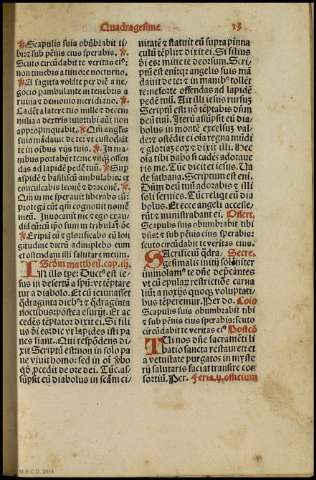 Quadragesime 13
Scapulis suis obũbrabit ti
bi: et sub pẽnis eius sperabis.
Scuto circũdabit te veritas ei9:
non timebis a timore nocturno.
A sagitta volãte per diẽ a ne
gocio perãbulante in tenebris a
ruina et demonio meridiano.
Cadẽt a latere tuo mille et decem
milia a dextris tuis: tibi autẽ non
appropinquabit. Qm̃ angelis
suis mãdauit de te: vt custodiãt
te in oĩbus vijs tuis. In ma
nibus portabũt te: ne vnq̃ offen
das ad lapidẽ pedẽ tuũ. Sup
aspidẽ et basiliscũ ambulabis: et
conculcabis leonẽ et draconẽ.
Qm̃ in me sperauit liberabo eũ:
protegã eũ qm̃ cognouit nomẽ
meũ. Inuocauit me et ego exau
diã eũ: cũ ipso sum in tribulatiõe
Eripiã eũ et glorificabo eũ lon
gitudine dierũ adimplebo eum
et ostendam illi salutare meum.
Scḋm mattheũ. cap. iiij.
IN illo tpe: Duct9 est ie
sus in desertũ a spũ: vt tẽptare
tur a diabolo. Et cũ ieiunasset
q̃draginta dieb9 et q̃draginta
noctibus: postea esurijt. Et ac
cedẽs tẽptator dixit ei. Si fili
us dei es: dic vt lapides isti pa
nes fiant. Qui respõdens di
xit. Scriptũ est: non in solo pa
ne viuit homo: sed in oĩ verbo
qđ procedit de ore dei. Tũc as
sũpsit eũ diabolus in sctãm ci
uitatẽ et statuit eũ supra pinna
culũ tẽpli: et dixit ei. Si filius
dei es: mitte te deorsum. Scri
ptũ est enĩ: qz angelis suis mã
dauit de te: et in manibus tollẽt
te: ne forte offendas ad lapidẽ
pedẽ tuũ. Ait illi iesus rursus:
Scriptũ est: nõ tẽptabis dñum
deũ tuũ. Iterũ assũpsit eũ dia
bolus in montẽ excelsuȝ val
de: et ostẽdit ei oĩa regna mũdi
et gloriã eor̃: et dixit illi. Hec
oĩa tibi dabo si cadẽs adoraue
ris me. Tũc dicit ei iesus. Va
de sathana. Scriptum est eni.
Dñm deũ tuũ adorabis: et illi
soli seruies. Tũc reliqt eũ dia
bolus. Et ecce angeli accesse
rũt et ministrabant ei. Offert.
Scapulis suis obumbrabit tibi
et sub pẽnis eius sperabis:
scuto circũdabit te veritas eius.
Sacrificiũ q̃dra Secre.
gesimalis initij soleniter
immolam9 te dñe depẽcantes
vt cũ epularũ restrictiõe carna
liũ a noxijs quoqz voluptati
bus tẽperemur. Per do. Cõio
Scapulis suis obũbrabit tibi
et sub pẽnis eius sperabis: scuto
circũdabit te veritas ei9. Postcõ
TUi nos dñe sacramẽti li
batio sancta restauret: et
a vetustate purgatos in myste
rij salutaris faciat transire con
sortiũ. Per. Feria. ij. officium